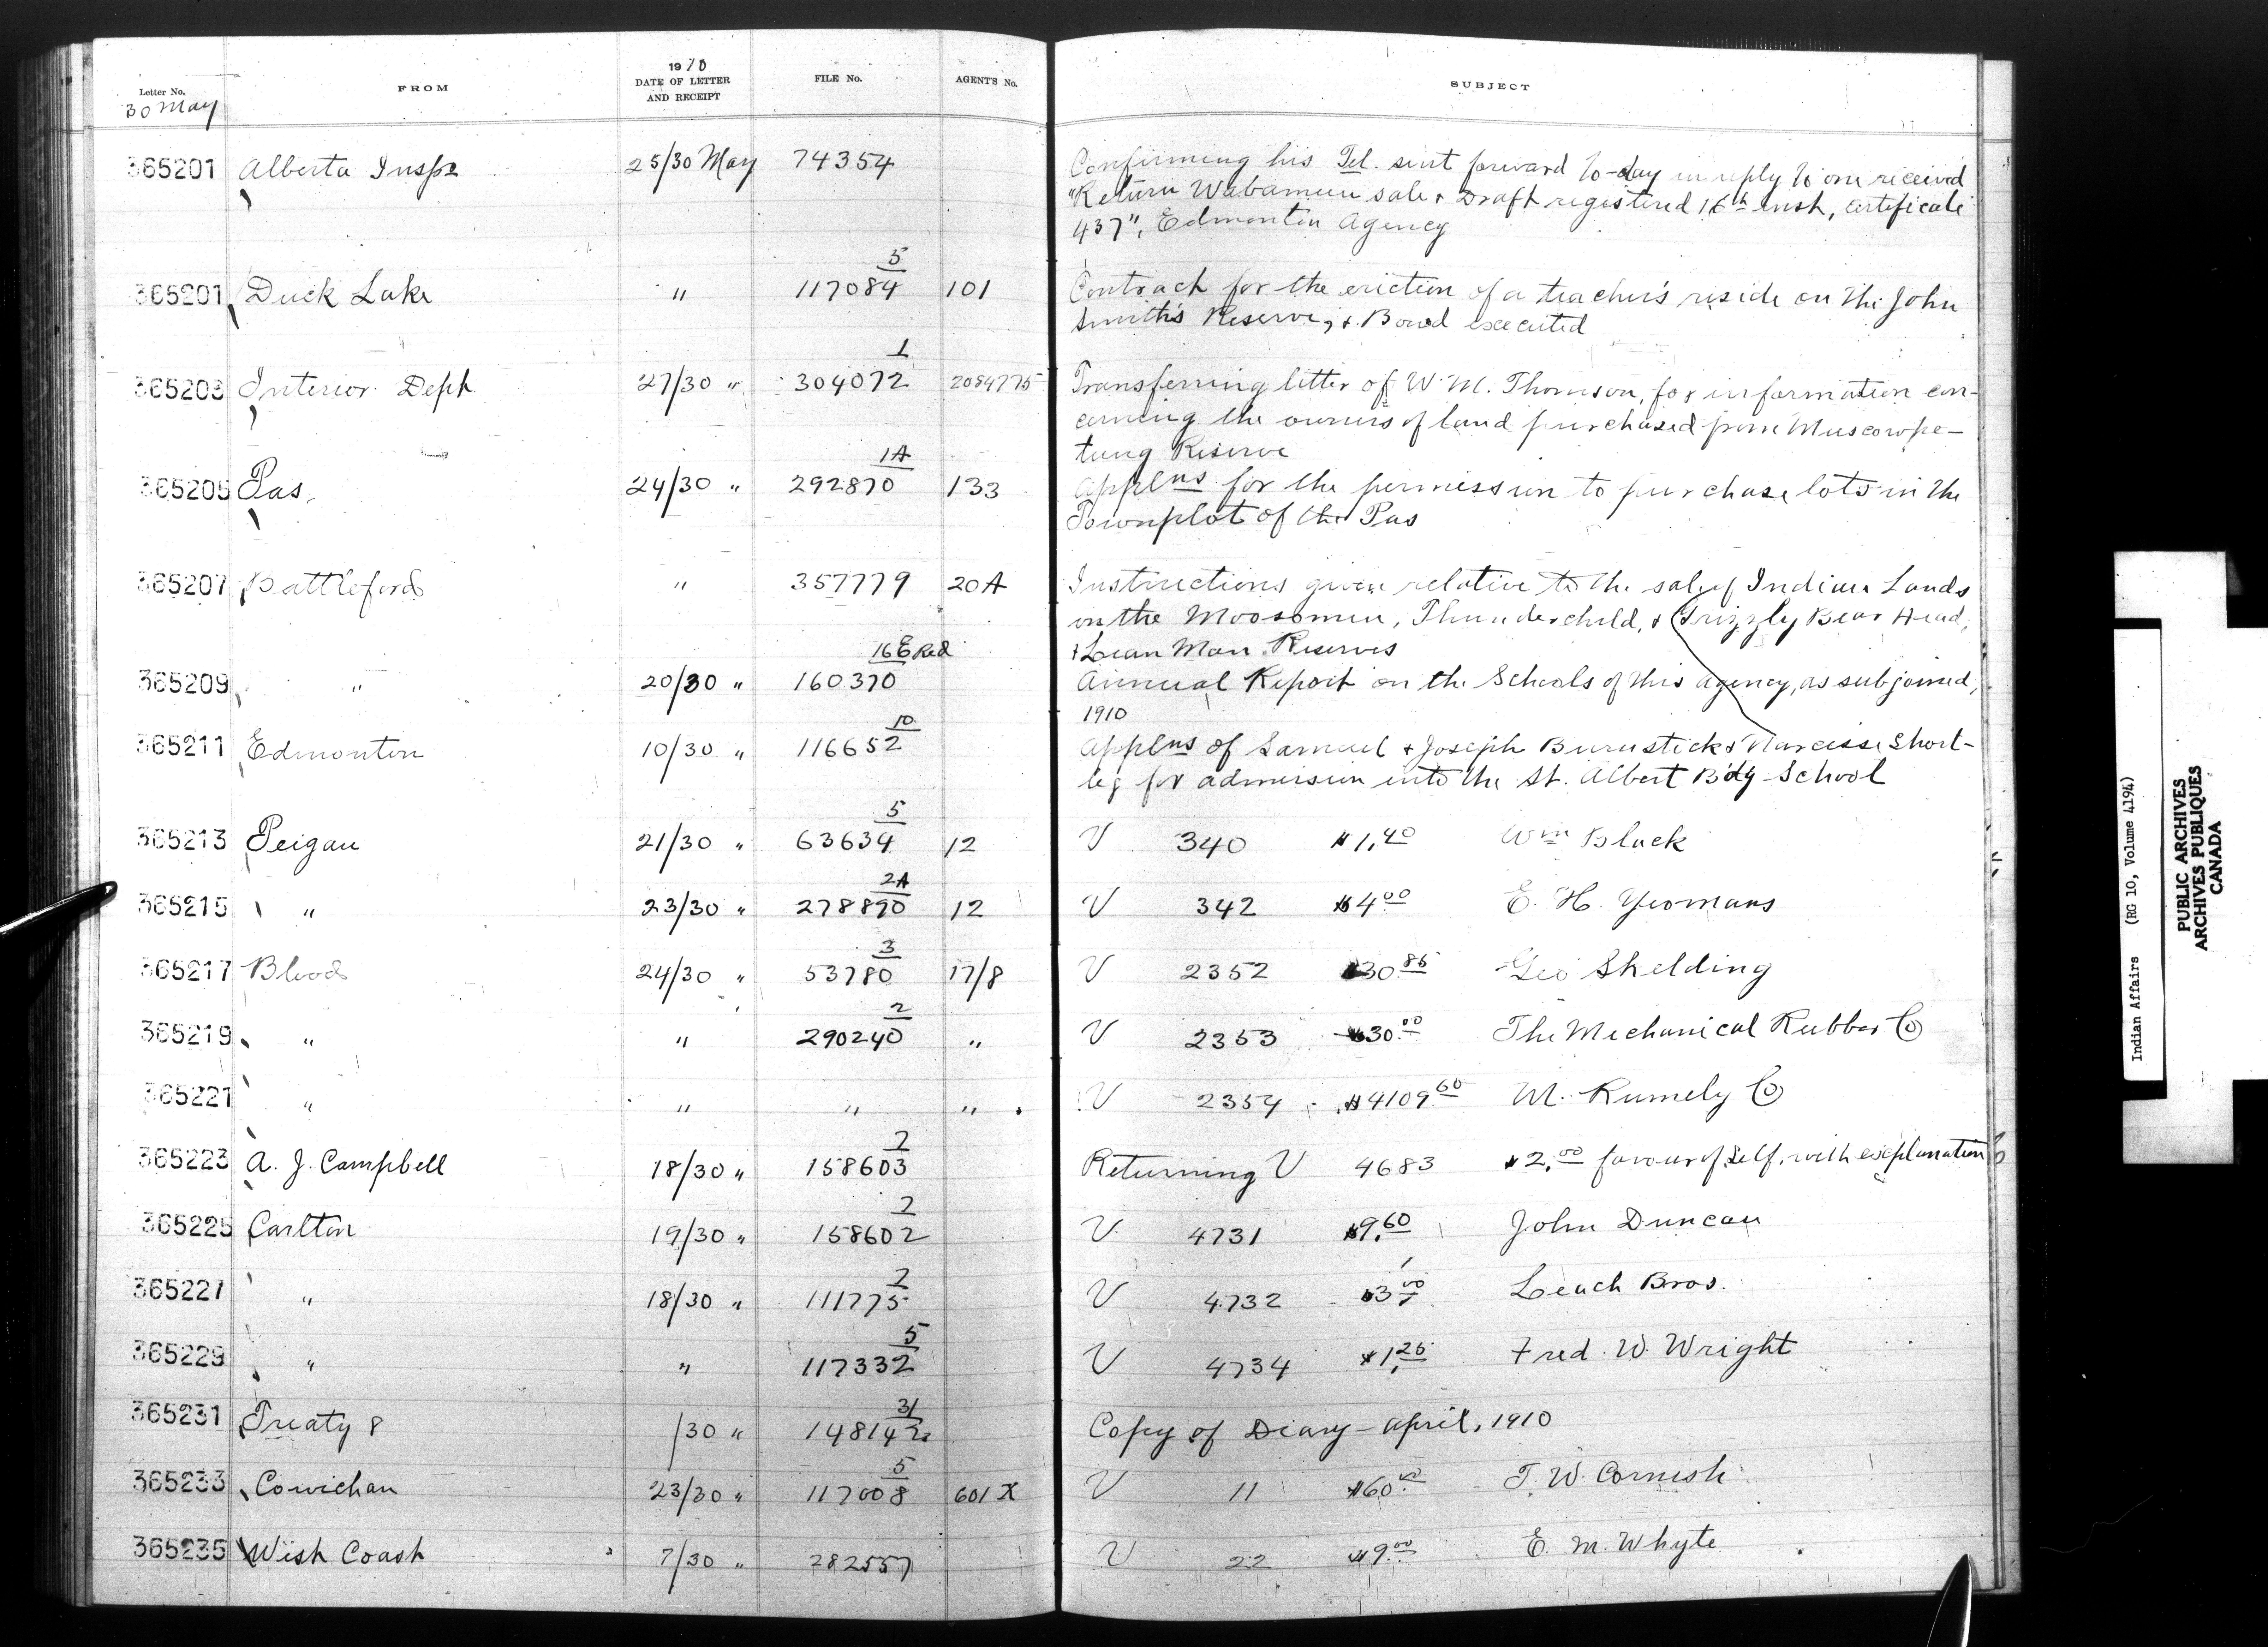 Letter No. FROM 1910 DATE OF LETTER AND RECEIPT FILE No. AGENT'S No. SUBJECT
30 May
365201 Alberta Inspr 25/30 May 74354 Confirming his Tel. sent forward to-day in reply to one received
"Return Wabamun sale & Draft registered 16th inst, certificate
437", Edmonton Agency
5
365201 Duck Lake " 117084 101 Contract for the erection of a teacher's reside on the John
Smith's Reserve, & Bond executed
1
365203 Interior Dept 27/30 " 304072 2084775 Transferring letter of W. M. Thomson, for information con-
cerning the owners of land purchased from Muscowpe-
tung Reserve
1A
365205 Pas 24/30 " 292870 133 Applns for the permission to purchase lots in the
Townplot of the Pas
365207 Battleford " 357779 20A Instructions given relative to the sale of Indian Lands
in the Moosomin, Thunderchild, & Grizzly Bear Head,
& Lean Man Reserves
16E Red
365209 " 20/30 " 160370 Annual Report on the Schools of this agency, as subjoined,
1910
10
365211 Edmonton 10/30 " 116652 Applns of Samuel & Joseph Burnstick & Narcisse Short-
leg for admission into the St. Albert B'dg School
5
365213 Peigan 21/30 " 63634 12 V 340 $1.40 Wm Black
2A
365215 " 23/30 " 278890 12 V 342 $4.00 E. H. Yeomans
3
365217 Blood 24/30 " 53780 17/8 V 2352 $30.85 Geo Shelding
2
365219 " " 290240 " V 2353 $30.00 The Mechanical Rubber Co
365221 " " " " V 2354 $4109.60 M. Rumely Co
2
365223 A. J. Campbell 18/30 " 158603 Returning V 4683 $2.00 favour of self, with explanation
2
365225 Carlton 19/30 " 158602 V 4731 $9.60 John Duncan
2
365227 " 18/30 " 111775 V 4732 $3.00 Leach Bros.
5
365229 " " 117332 V 4734 $1.25 Fred. W. Wright
31
365231 Treaty 8 /30 " 148142 Copy of Diary - April, 1910
5
365233 Cowichan 23/30 " 117008 601 X V 11 $60.00 T. W. Cornish
365235 West Coast 7/30 " 282557 V 22 $9.00 E. M. Whyte
Indian Affairs (RG 10, Volume 4194)
PUBLIC ARCHIVES
ARCHIVES PUBLIQUES
CANADA